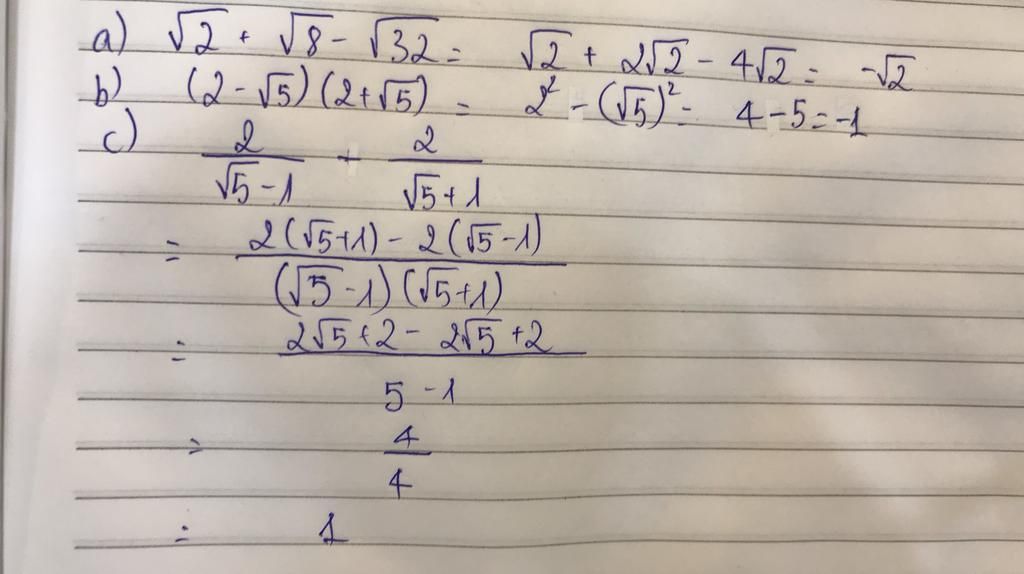 a) √2 + √8 - √32 = √2 + 2√2 - 4√2 = -√2
b) (2 - √5) (2 + √5) = 2² - (√5)² = 4 - 5 = -1
c) 2/(√5 - 1) + 2/(√5 + 1)
= (2(√5 + 1) - 2(√5 - 1))/((√5 - 1) (√5 + 1))
= (2√5 + 2 - 2√5 + 2)/(5 - 1)
= 4/4
= 1